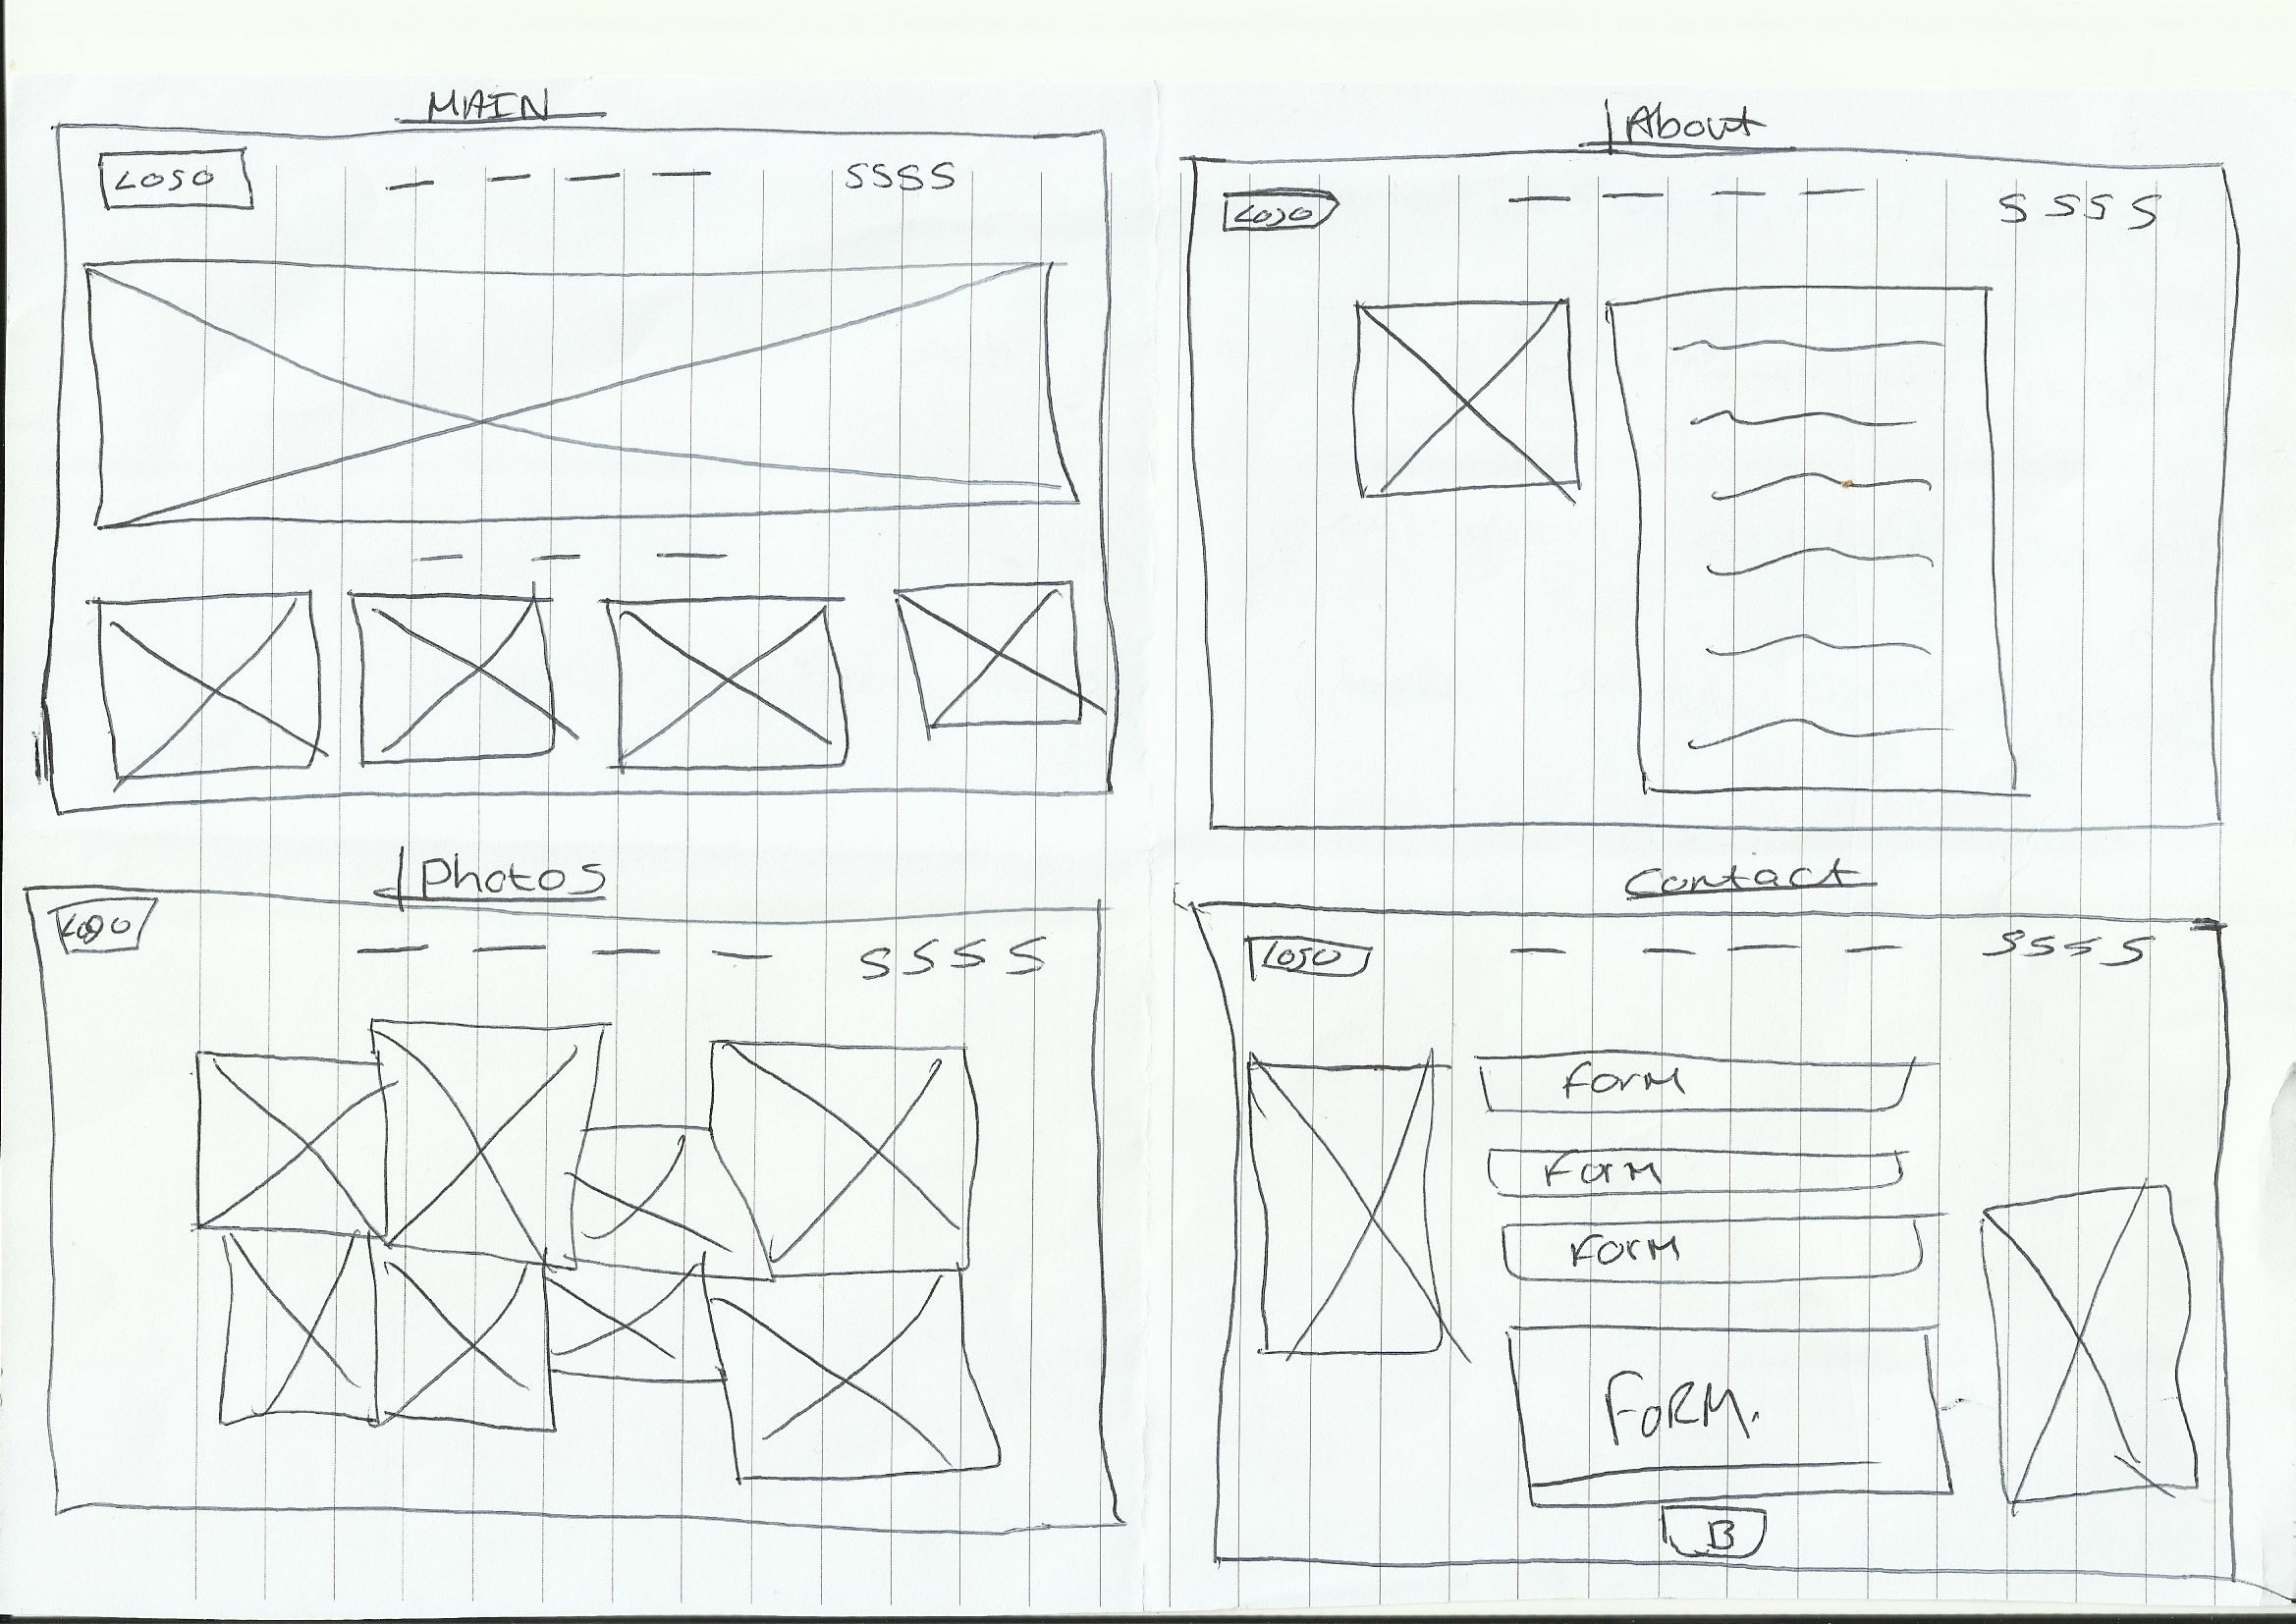 MAIN
LOGO
SSSS
About
LOGO
S S S S
Photos
LOGO
S S S S
Contact
LOGO
S S S S
Form
Form
Form
FORM.
B